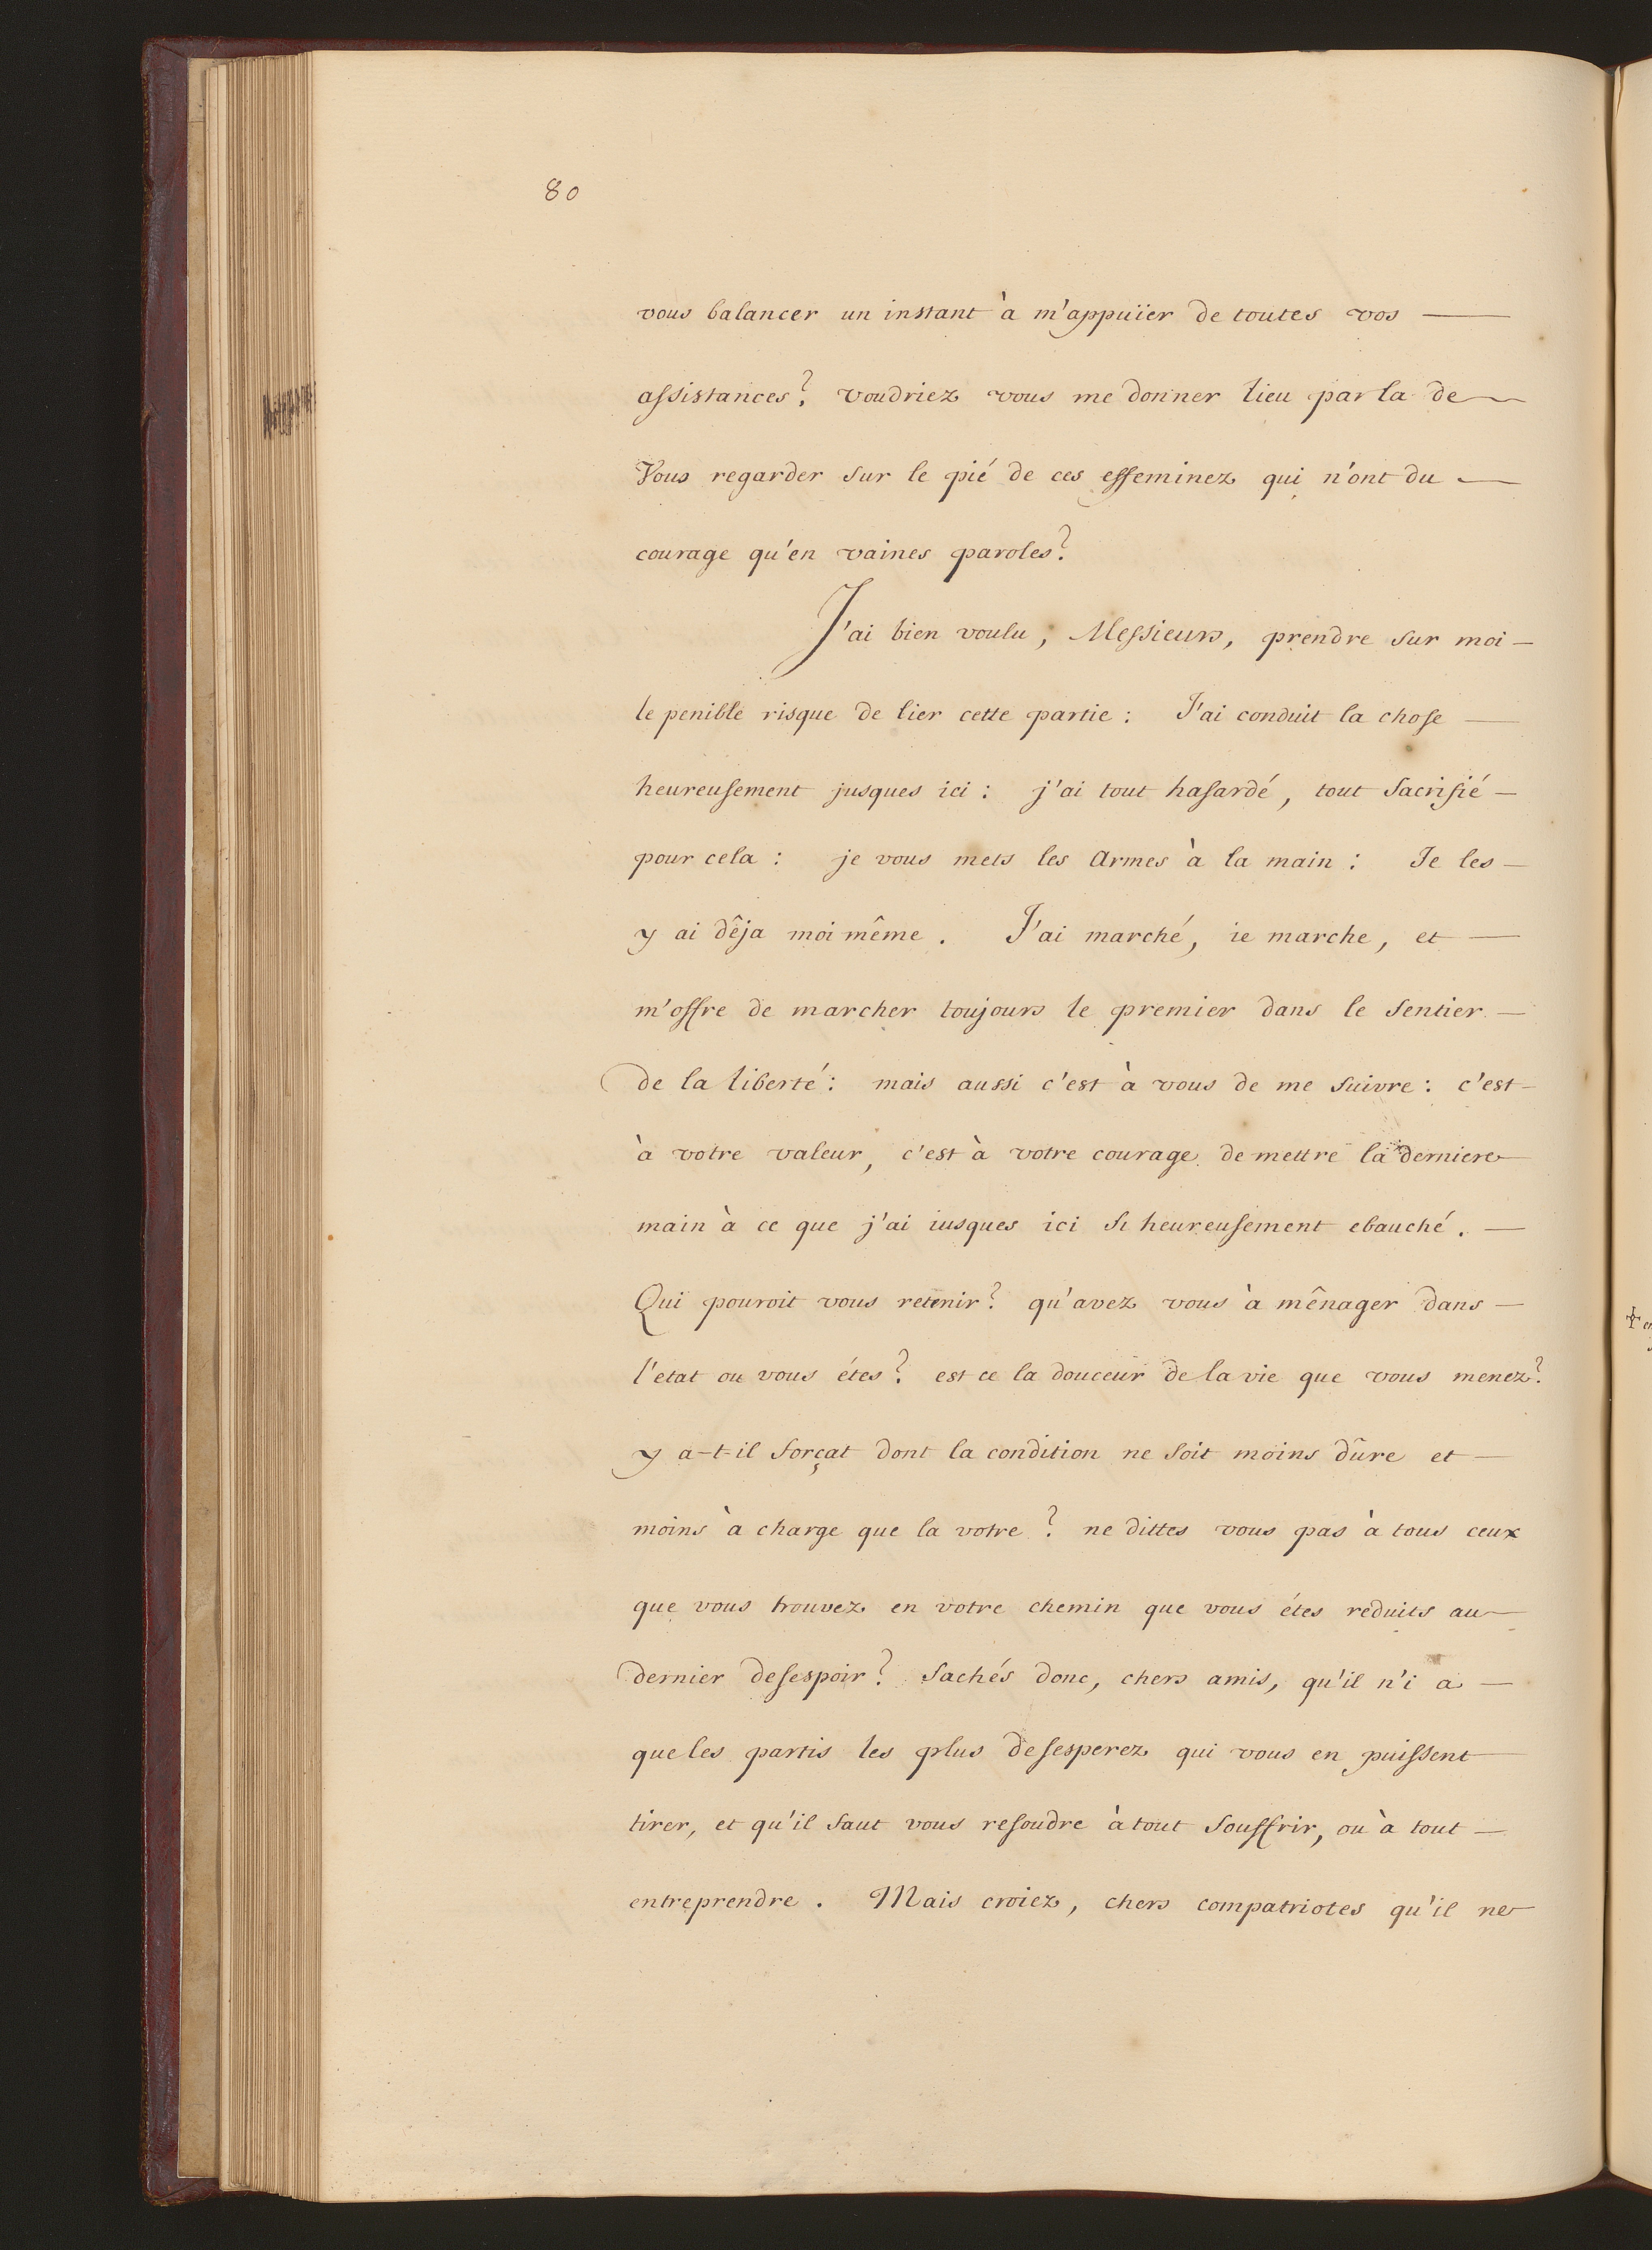 80
vous balancer un instant à m'appuïer de toutes vos —
assistances? voudriez vous me donner lieu par la de —
Vous regarder sur le pié de ces effeminez qui n'ont du —
courage qu'en vaines paroles?
J'ai bien voulu, Messieurs, prendre sur moi —
le penible risque de lier cette partie : J'ai conduit la chose —
heureusement jusques ici : j'ai tout hasardé, tout sacrifié —
pour cela : je vous mets les armes à la main : Je les —
y ai dêja moi même. J'ai marché, ie marche, et —
m'offre de marcher toujours le premier dans le sentier —
de la liberté : mais aussi c'est à vous de me suivre : c'est —
à votre valeur, c'est à votre courage de mettre la derniere —
main à ce que j'ai iusques ici si heureusement ebauché. —
Qui pouroit vous retenir? qu'avez vous à mênager dans —
l'etat ou vous étes? est ce la douceur de la vie que vous menez?
y a-t-il forçat dont la condition ne soit moins dûre et —
moins à charge que la votre? ne dittes vous pas à tous ceux
que vous trouvez en votre chemin que vous étes reduits au —
dernier desespoir? Sachés donc, chers amis, qu'il n'i a —
que les partis les plus desesperez qui vous en puissent —
tirer, et qu'il faut vous resoudre à tout souffrir, ou à tout —
entreprendre. Mais croiez, chers compatriotes qu'il ne —